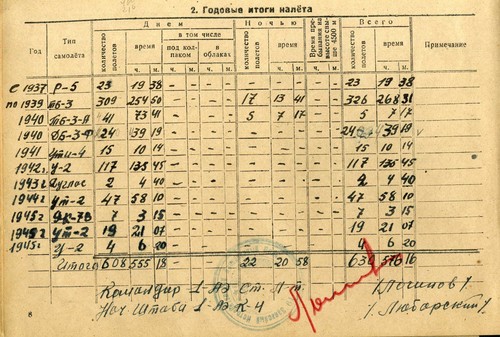 2. Годовые итоги налёта
Год Тип самолёта Днем Ночью Время пребывания на высоте свыше 4500 м Всего Примечание
количество полетов время в том числе количество полетов время количество полетов время
под колпаком в облаках
ч. м. ч. м. ч. м. ч. м. ч. м. ч. м.
с 1937 Р-5 23 19 38 - - - - - - - - - 23 19 38
по 1939 ТБ-3 309 254 50 - - - - 17 13 41 - - 326 268 31
1940 ТБ-3-А 41 73 41 - - - - 5 7 17 - - 5 7 17
1940 ДБ-3-Ф 24 39 19 - - - - - - - - - 24 39 19
1941 УТИ-4 15 10 14 - - - - - - - - - 15 10 14
1942г У-2 117 135 45 - - - - - - - - - 117 135 45
1943г Дуглас 2 4 40 - - - - - - - - - 2 4 40
1944г УТ-2 47 58 10 - - - - - - - - - 47 58 10
1945г ЯК-7В 7 3 15 - - - - - - - - - 7 3 15
1945г УТ-2 19 21 07 - - - - - - - - - 19 21 07
1945г У-2 4 6 20 - - - - - - - - - 4 6 20
Итого 608 555 18 - - - - 22 20 58 - - 630 576 16
Командир 1-АЭ Ст. Л-т /Логинов/
Нач. Штаба 1-АЭ К-н /Любарский/
8